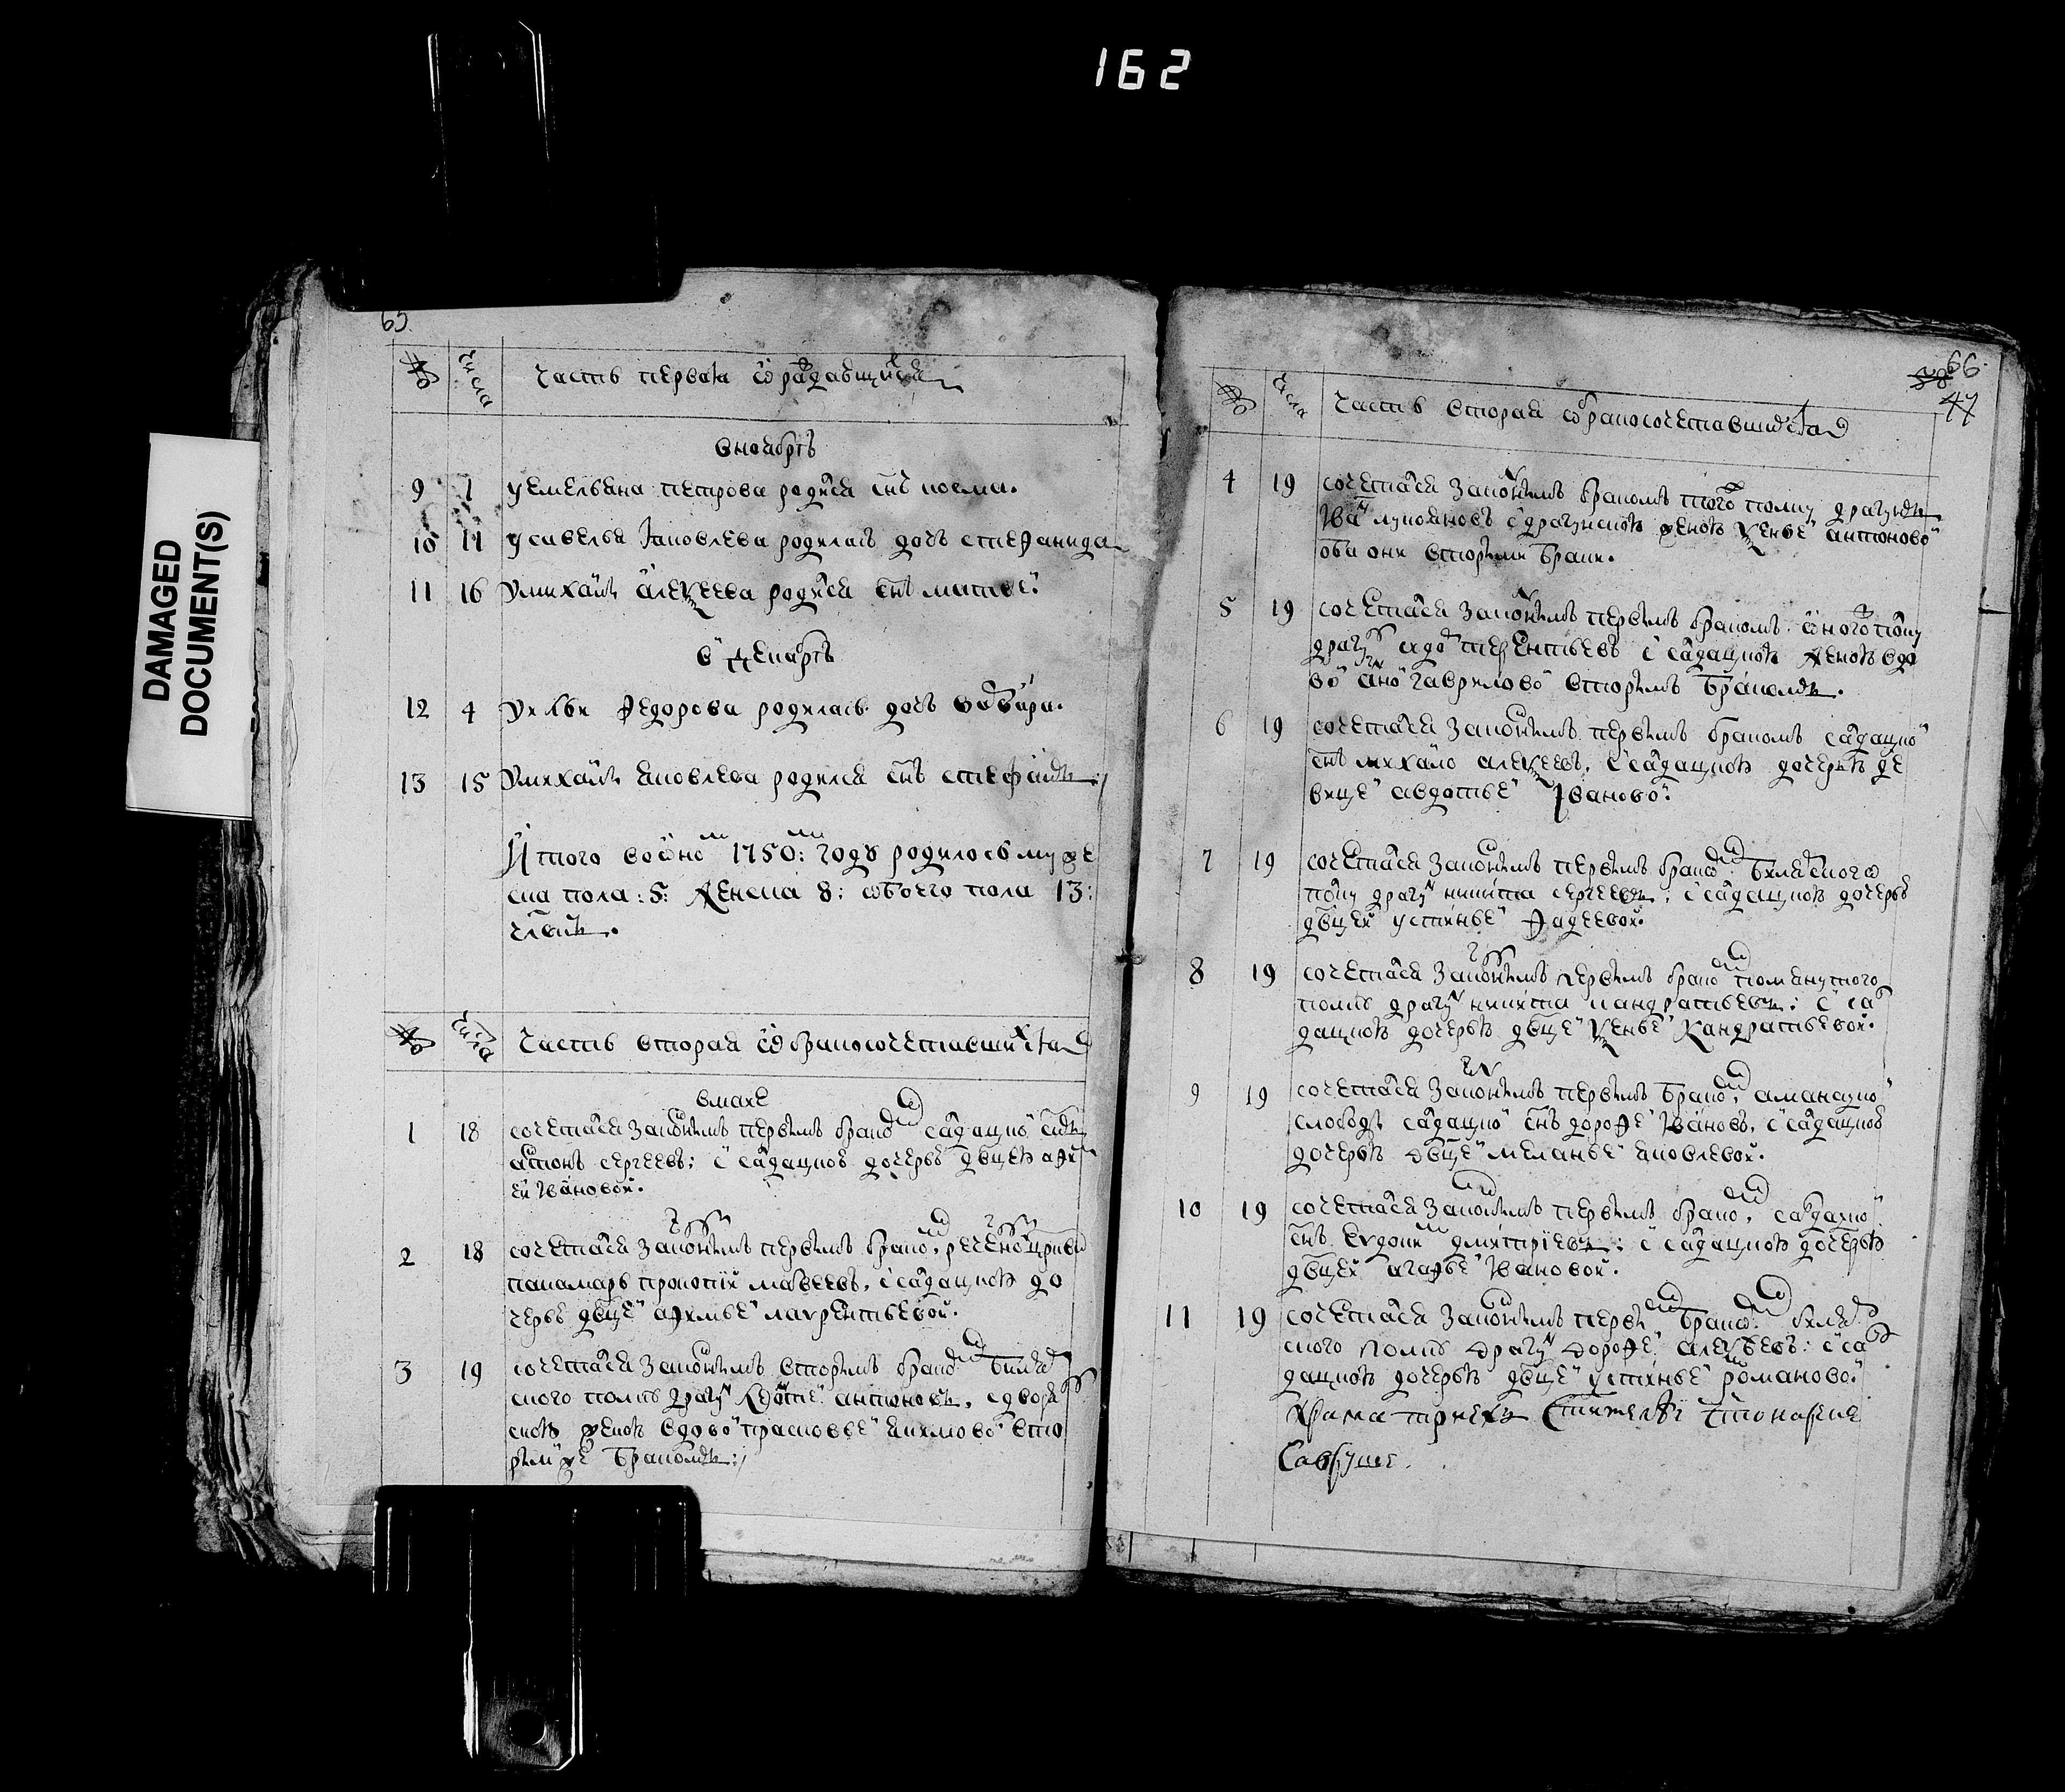 162
DAMAGED
DOCUMENT(S)
65.
№ числа часть первая о раждающихся
в ноябрѣ
9 7 у емельяна петрова родился снъ козма.
10 11 у савелья Iаковлева родилась дочь стефанида
11 16 у михаила алеѯеева родился снъ матвей.
в декабрѣ
12 4 у ильи федорова родилась дочь варвара.
13 15 у михаила яковлева родился снъ стефанъ
И того в оном 1750: году родилось муже
ска пола: 5: женска 8: обоего пола 13:
члвкъ.
№ числа часть вторая о бракосочетавшихся
в маие
1 18 сочетался законнымъ первымъ бракомъ садацкой снъ
сергеевъ: с садацкой дочерью двцею
ей Ивановой.
2 18 сочетался законнымъ первымъ бракомъ, реченной церкви
панамарь прокопий матвеевъ, с садацкой до
черью двцей лаврентьевой.
3 19 сочетался законнымъ вторымъ бракомъ
ского полку драгун антоновъ, с
ской женой вдовой прасковьей екимовой вто
рымъ же бракомъ:
66.
38
47
№ числа часть вторая о бракосочетавшихся
4 19 сочетался законнымъ бракомъ того полку драгунъ
Иван лукояновъ с драгунской женой ѯеньей антоновой
оба они вторымъ браки.
5 19 сочетался законнымъ первымъ бракомъ оного полку
драгун терентьевъ с садацкой женой вдо
вой анной гавриловой вторымъ бракомъ.
6 19 сочетался законнымъ первымъ бракомъ садацкой
снъ михайло алеѯеевъ, с садацкой дочерью де
вицей авдотьей Ивановой.
7 19 сочетался законнымъ первымъ бракомъ билярского
полку драгун никита сергеевъ, с садацкой дочерью
двцей устиньей фадеевой.
8 19 сочетался законнымъ первымъ бракомъ помянутого
полку драгун никита кандратьевъ: с са
дацкой дочерью двцей ѯеньей кандратьевой.
9 19 сочетался законнымъ первымъ бракомъ, аманацкой
слободы садацкой снъ дорофей Ивановъ, с садацкой
дочерью двцей меланьей яковлевой.
10 19 сочетался законнымъ первымъ бракомъ, садацкой
снъ евдоким дмитриевъ: с садацкой дочерью
двцей агафьей Ивановой.
11 19 сочетался законнымъ первымъ бракомъ биляр
ского полку драгун дорофей алеѯеевъ: с са
дацкой дочерью двцей устиньей романовой.